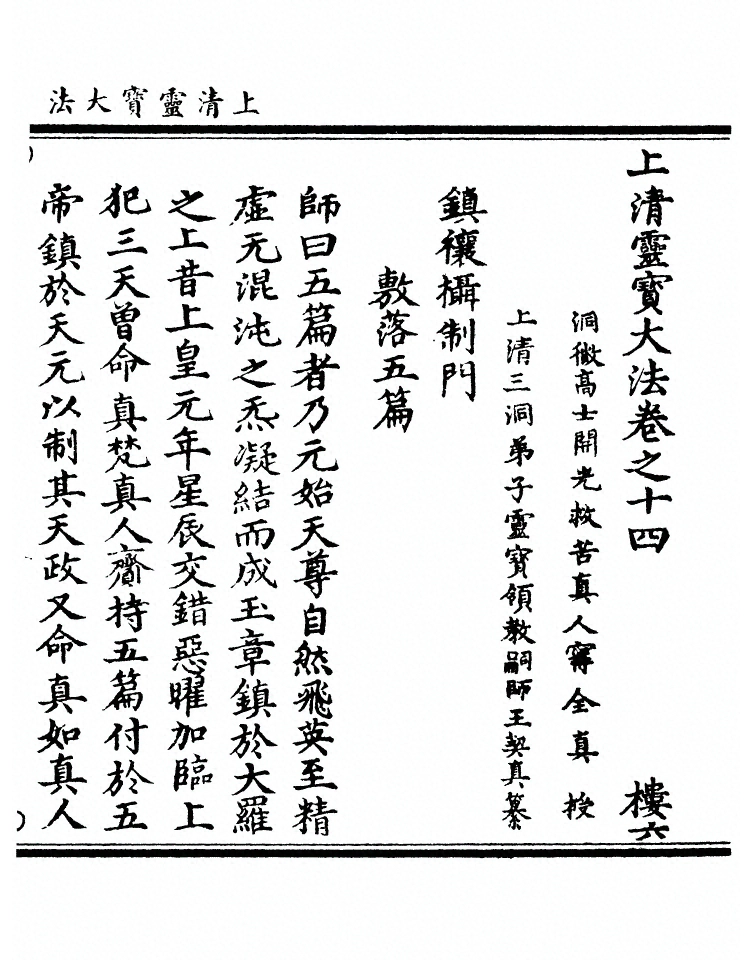 上清靈寶大法
上清靈寶大法卷之十四 樓六
洞微高士開光救苦真人寗全真 授
上清三洞弟子靈寶領教嗣師王契真纂
鎮禳攝制門
敷落五篇
師曰五篇者乃元始天尊自然飛英至精
虛无混沌之炁凝結而成玉章鎮於大羅
之上昔上皇元年星辰交錯惡曜加臨上
犯三天曾命真梵真人齎持五篇付於五
帝鎮於天元以制其天政又命真如真人